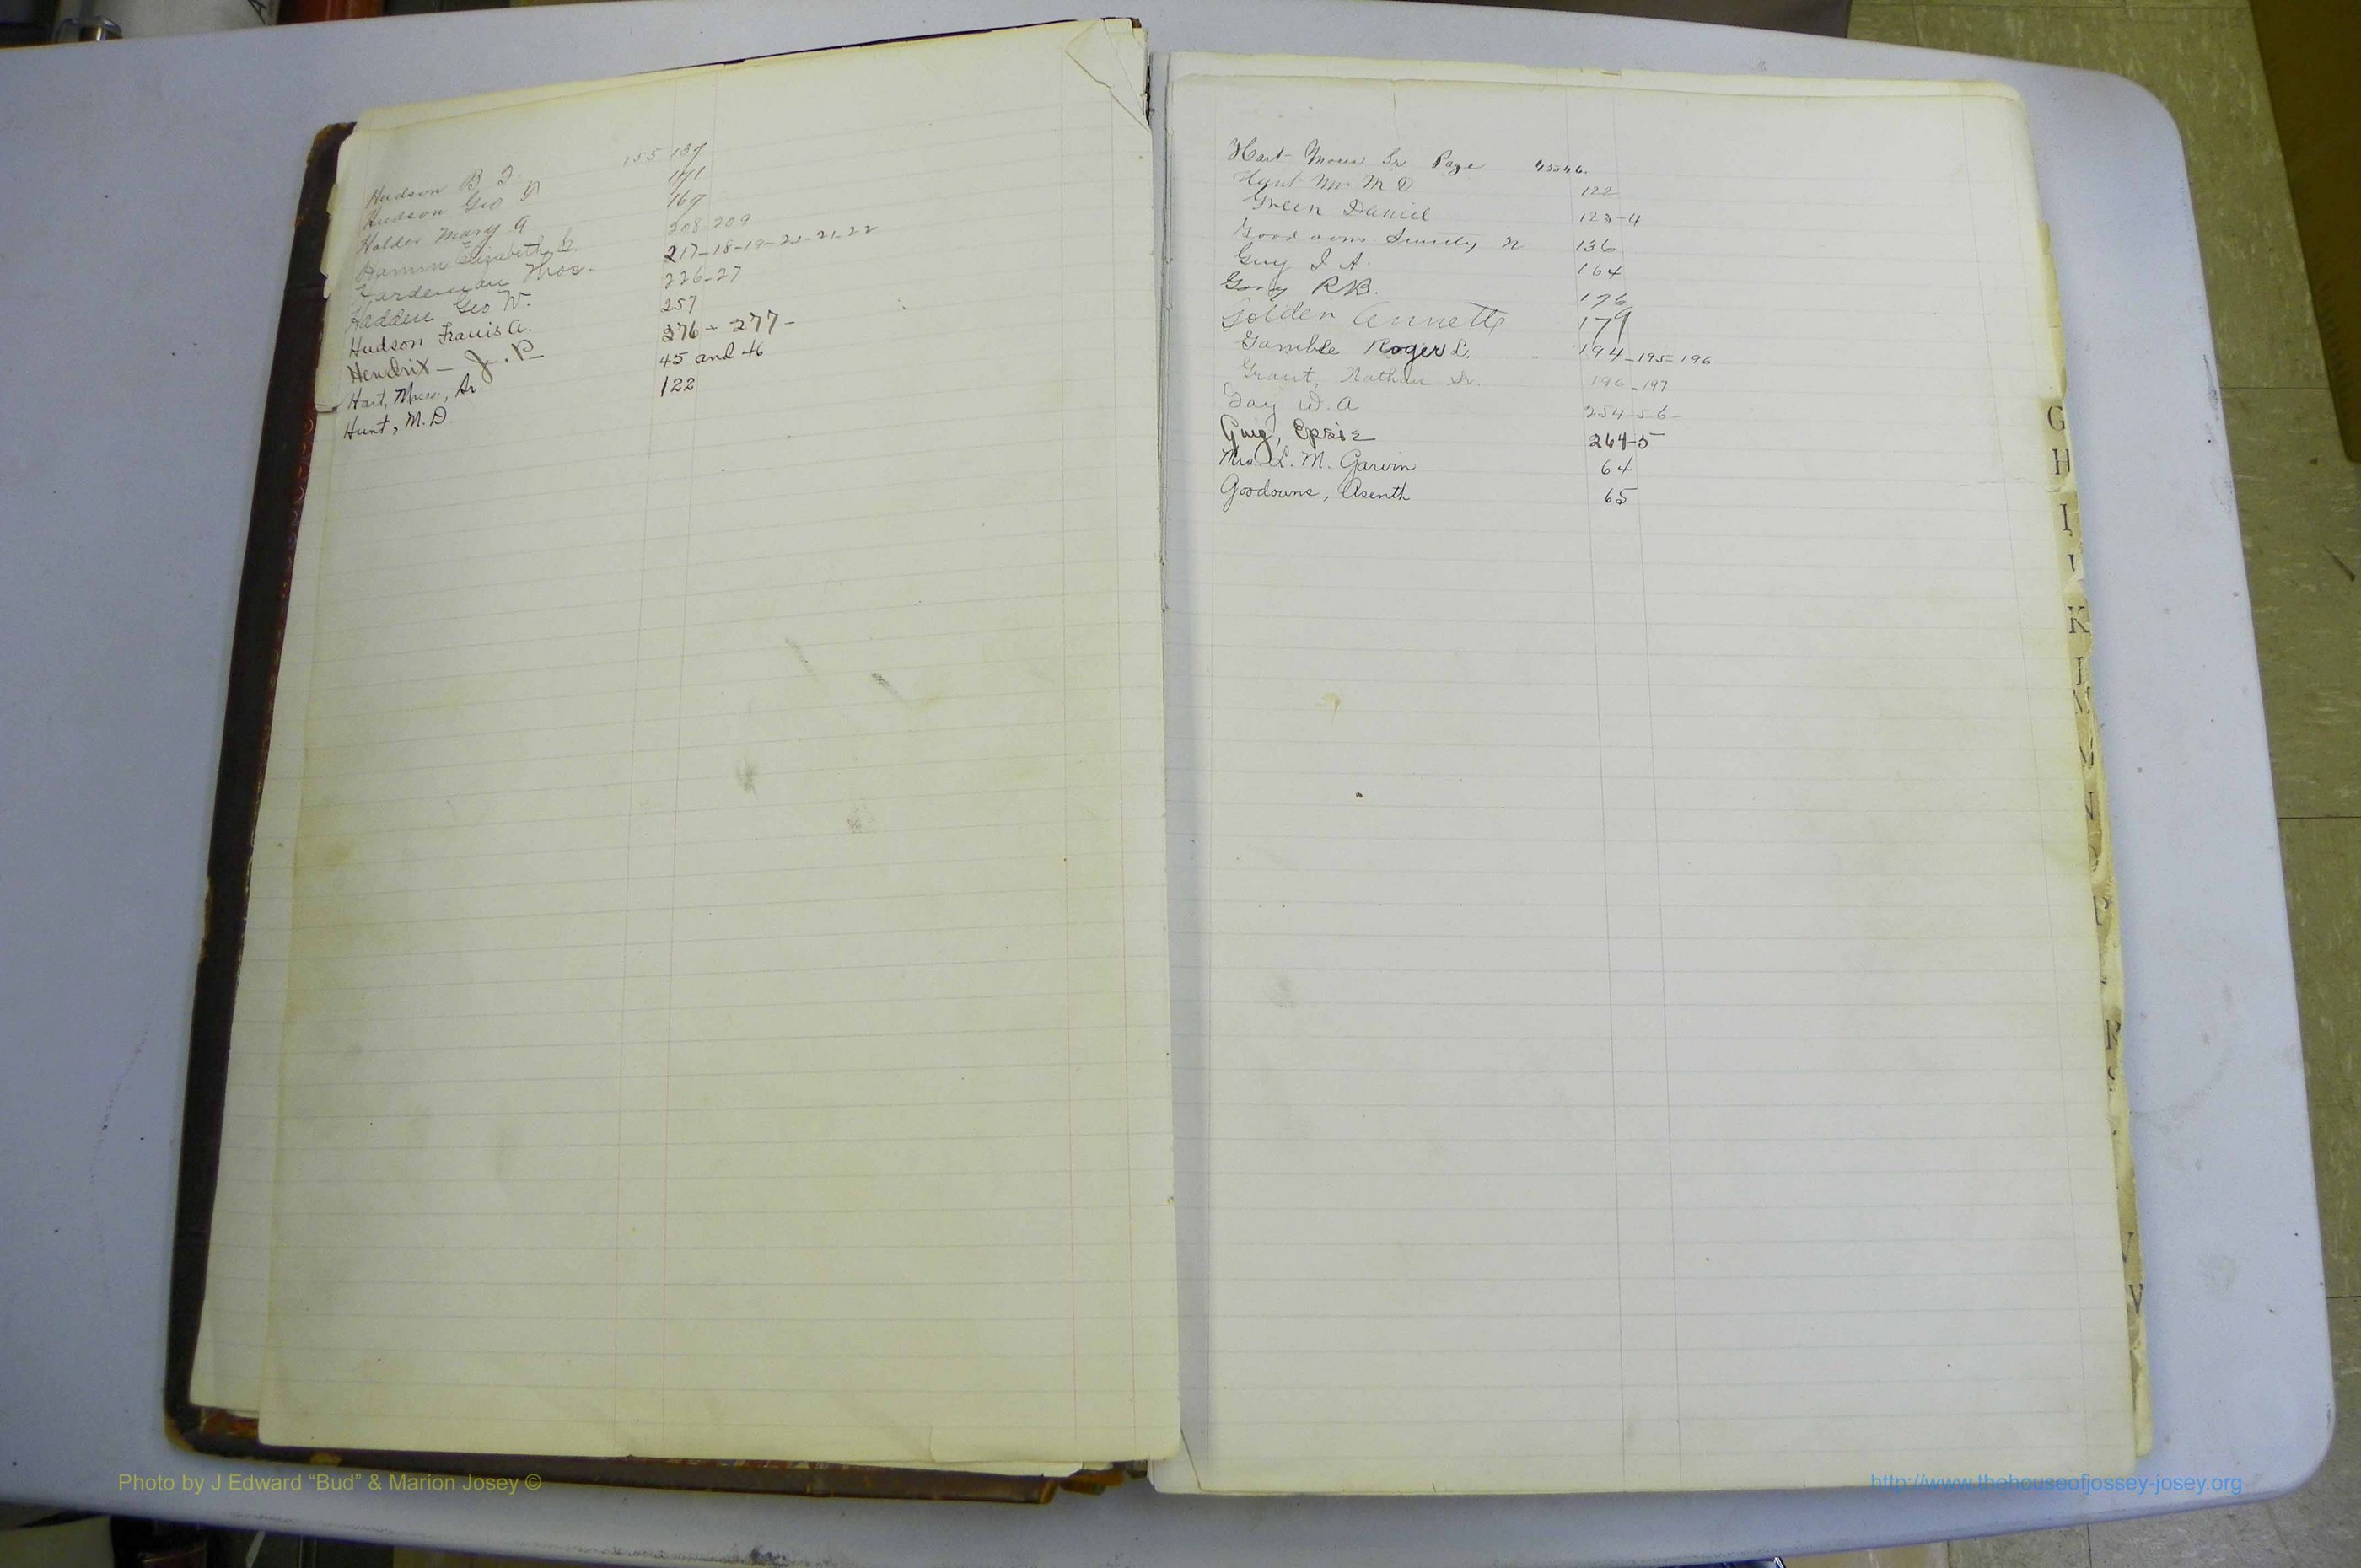 Hudson B 155 157
Hudson Geo 171
Holder Mary A 169
Hamm Elizabeth 208 209
Hardeman Thos. 217-18-19-20-21-22
Hadden Geo W. 226-27
Hudson Francis A. 257
Hendrix - J. P 276 - 277 -
Hart, Moses, Sr. 45 and 46
Hunt, M. D. 122
Hart Moses Sr Page 45 & 46.
Hunt Mr M D 122
Green Daniel 123-4
136
Guy J A. 164
R B. 176
Golden Annette 179
Gamble Roger L. 194-195-196
Grant, Nathan Sr. 196-197
Gay W. A 254-5-6-
Guy, Epsie 264-5
Mrs. L. M. Garvin 64
Goodowns, Asenth 65
G
H
I
K
M
N
R
V
W
Photo by J Edward “Bud” & Marion Josey ©
http://www.thehouseofjossey-josey.org